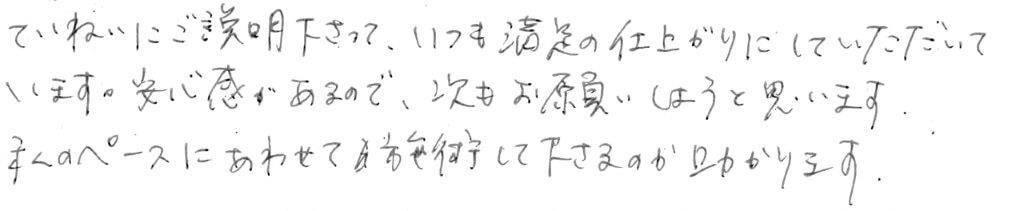 ていねいにご説明下さって、いつも満足の仕上がりにしていただいて
います。安心感があるので、次もお願いしようと思います.
のペースにあわせて施術して下さるのが助かります.